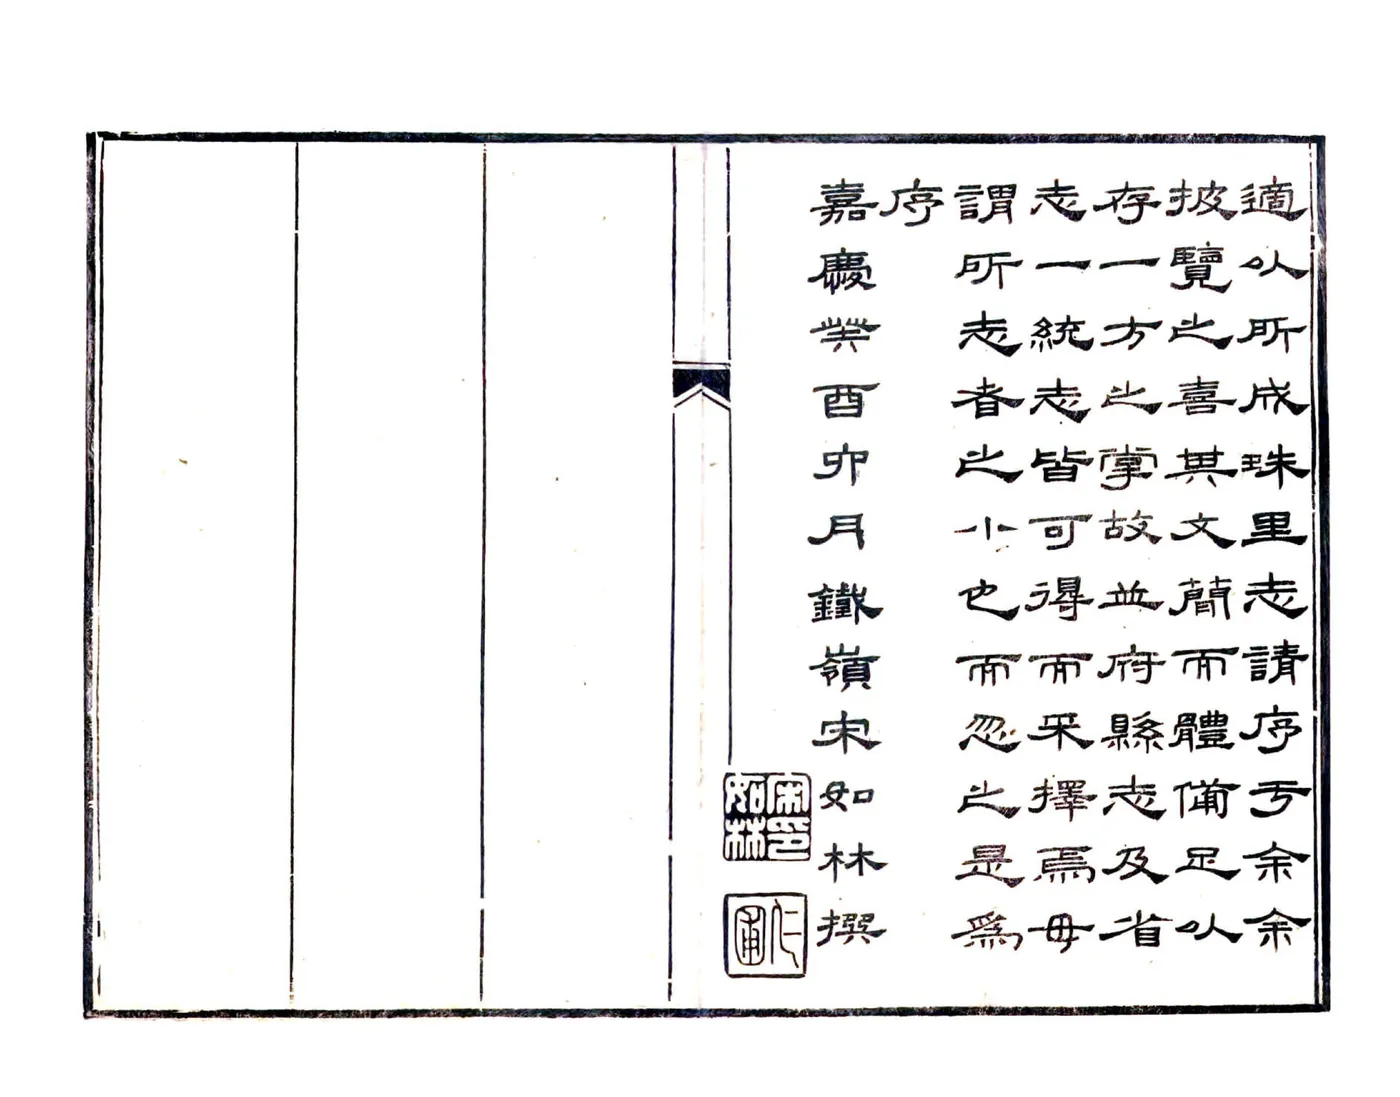 適以所成珠里志請序于余余
披覽之喜其文簡而體備足以
存一方之掌故並府縣志及省
志一統志皆可得而采擇焉毋
謂所志者之小也而忽之是為
序
嘉慶癸酉卯月鐵嶺宋如林撰
宋如林印
仁甫